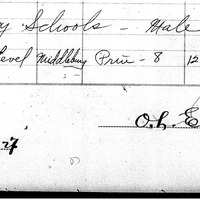 y. Schools - Male
Level Middlebury Prin - 8 12
O. L. E
27